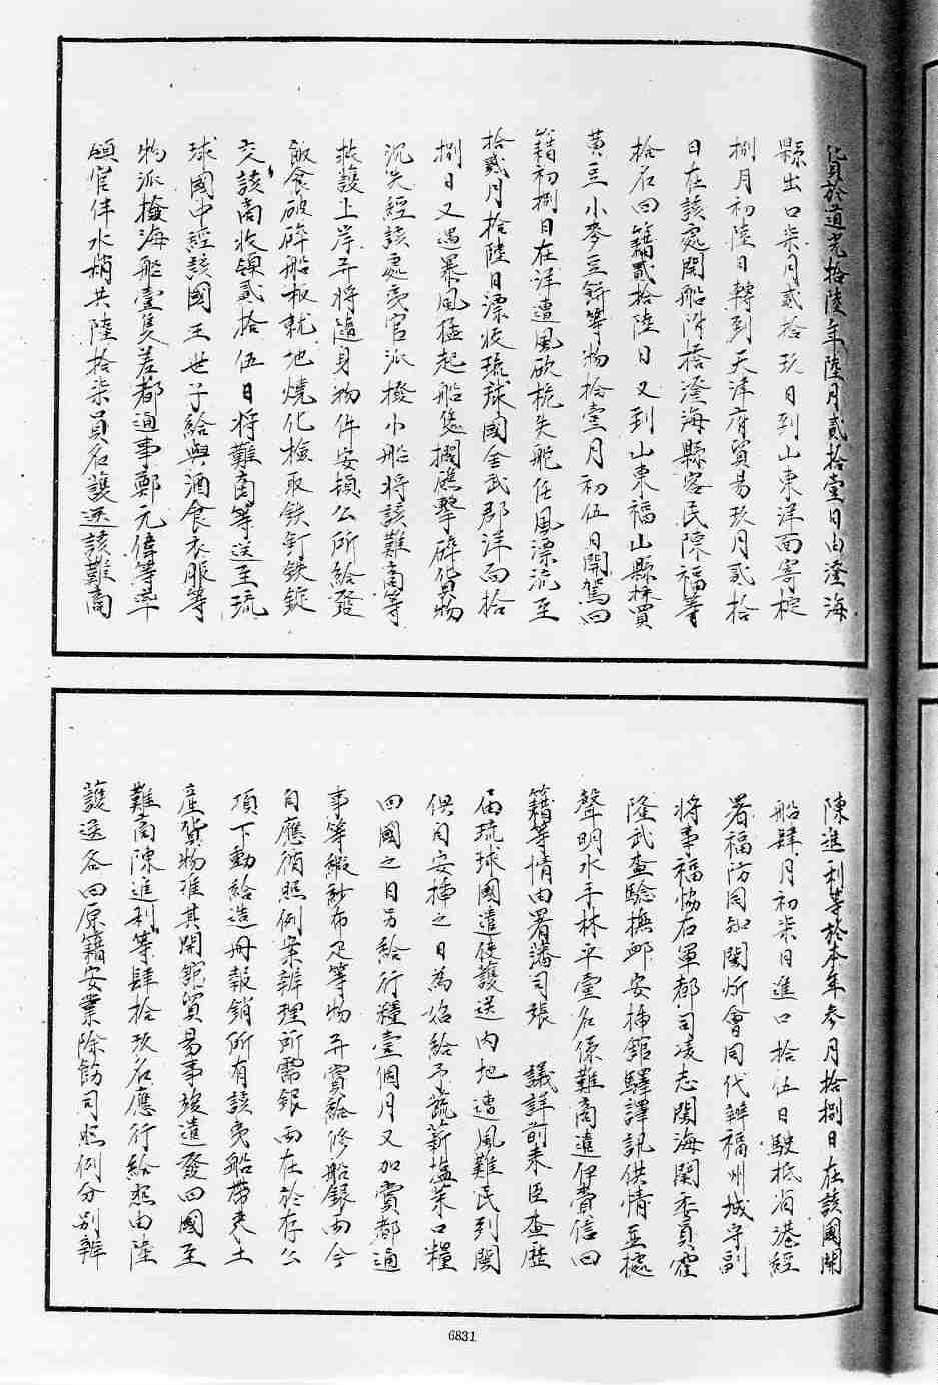 貨於道光拾陸年陸月貳拾壹日由澄海
縣出口柒月貳拾玖日到山東洋面寄椗
捌月初陸日轉到天津府貿易玖月貳拾
日在該處開船附搭澄海縣客民陳福等
拾名回籍貳拾陸日又到山東福山縣採買
黃豆小麥豆餅等物拾壹月初伍日開駕回
籍初捌日在洋遭風砍桅失舵任風漂流至
拾貳月拾陸日漂收琉球國金武郡洋面拾
捌日又遇暴風猛起船隻擱礁擊碎貨物
沉失經該處夷官派撥小船將該難商等
救護上岸并將隨身物件安頓公所給發
飯食破碎船板就地燒化檢取鉄釘鉄錠
交該商收領貳拾伍日將難商等送至琉
球國中經該國王世子給與酒食衣服等
物派撥海船壹隻差都通事鄭元偉等率
領官伴水梢共陸拾柒員名護送該難商
陳進利等於本年參月拾捌日在該國開
船肆月初柒日進口拾伍日駛抵省港經
署福防同知閩炘會同代辦福州城守副
將事福協右軍都司凌志閩海關委員霍
隆武查驗撫卹安揷館驛譯訊供情並據
聲明水手林平壹名係難商遠伊費信回
籍等情由署藩司張 議詳前來臣查歷
屆琉球國遣使護送內地遭風難民到閩
俱自安揷之日為始給予蔬薪塩菜口糧
回國之日另給行糧壹個月又加賞都通
事等緞紗布疋等物并賞給修船銀両今
自應循照例案辦理所需銀両在於存公
項下動給造冊報銷所有該夷船帶來土
產貨物准其開館貿易事竣遣發回國至
難商陳進利等肆拾玖名應行給恕由陸
護送各回原籍安業除飭司照例分別辦
6831